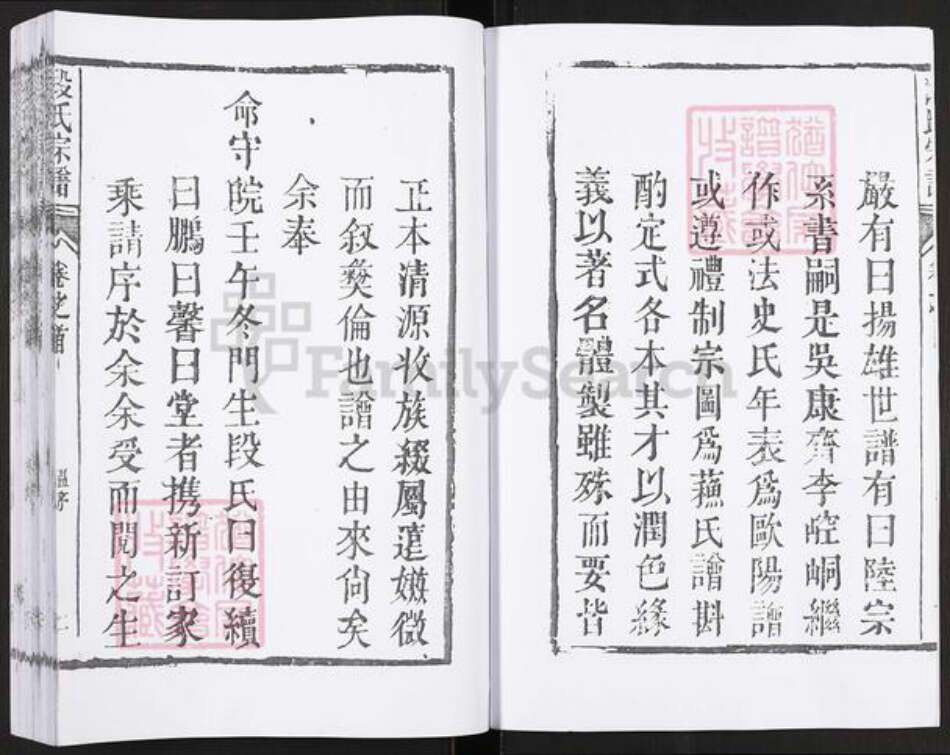 嚴有曰揚雄世譜有曰陸宗
系書嗣是吳康齋李崆峒繼
作或法史氏年表為歐陽譜
或遵禮制宗圖為蘓氏譜斟
酌定式各本其才以潤色緣
義以著名體製雖殊而要皆
正本清源收族綴屬
而叙彝倫也譜之由來尙矣
余奉
命守皖壬午冬門生段氏曰復續
曰鵬曰馨曰堂者携新訂家
乘請序於余余受而閱之生
段氏宗譜
卷之首
FamilySearch